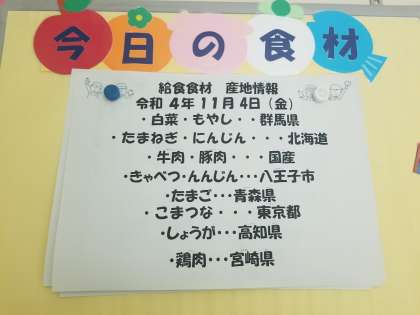 今日の食材
給食食材　産地情報
令和 4年 11月 4日（金）
・白菜・もやし・・群馬県
・たまねぎ・にんじん・・・北海道
・牛肉・豚肉・・・国産
・きゃべつ・んんじん・・・八王子市
・たまご・・・青森県
・こまつな・・・東京都
・しょうが・・・高知県
・鶏肉・・・宮崎県